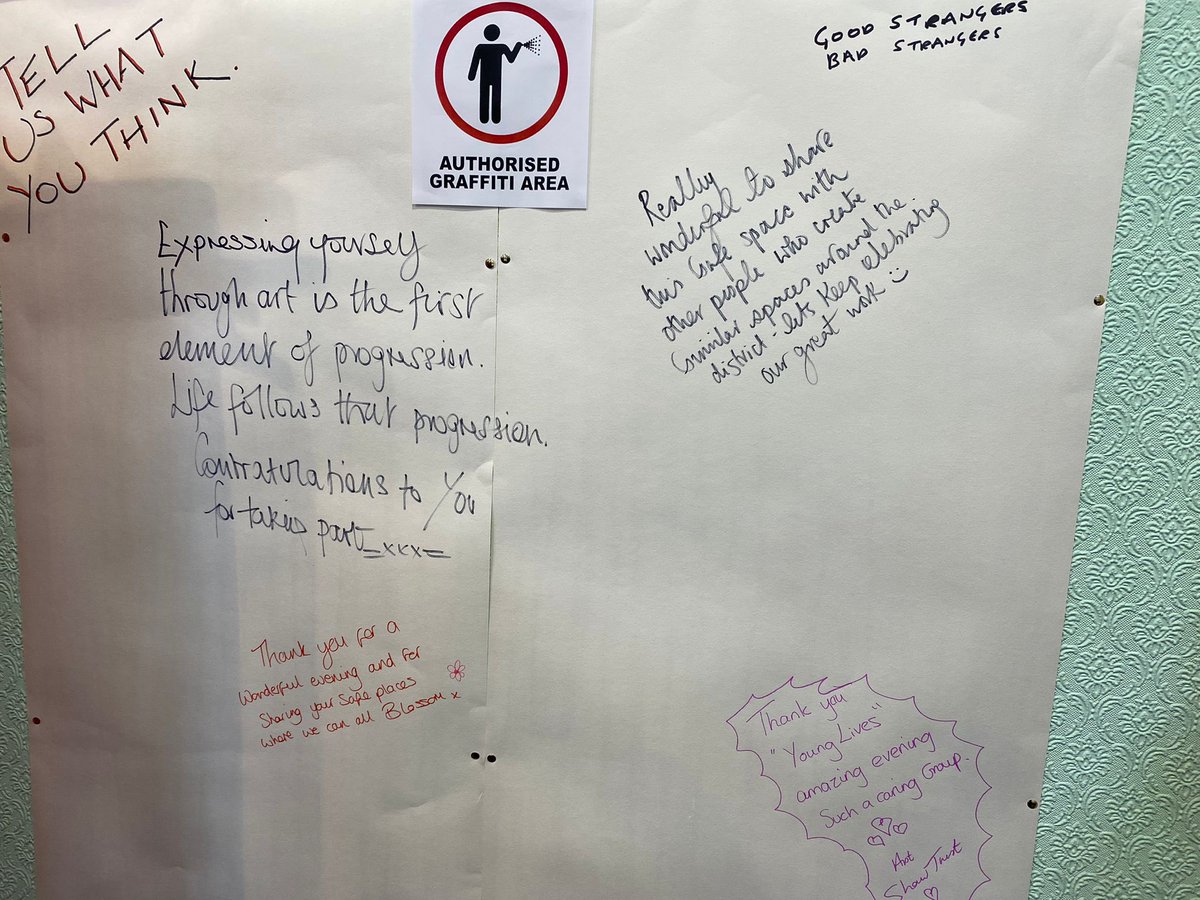 TELL
US WHAT
YOU THINK.
AUTHORISED
GRAFFITI AREA
GOOD STRANGERS
BAD STRANGERS
Expressing yourself
through art is the first
element of progression.
Life follows that progression.
Contraturations to You
for taking part =xxx=
Really
wonderful to share
this safe space with
other people who create
similar spaces around the
district - lets keep celebrating
our great work
Thank you for a
wonderful evening and for
sharing your safe places
where we can all Blossom x
Thank you
"Young Lives"
amazing evening
Such a caring Group.
Art
Shaw Trust